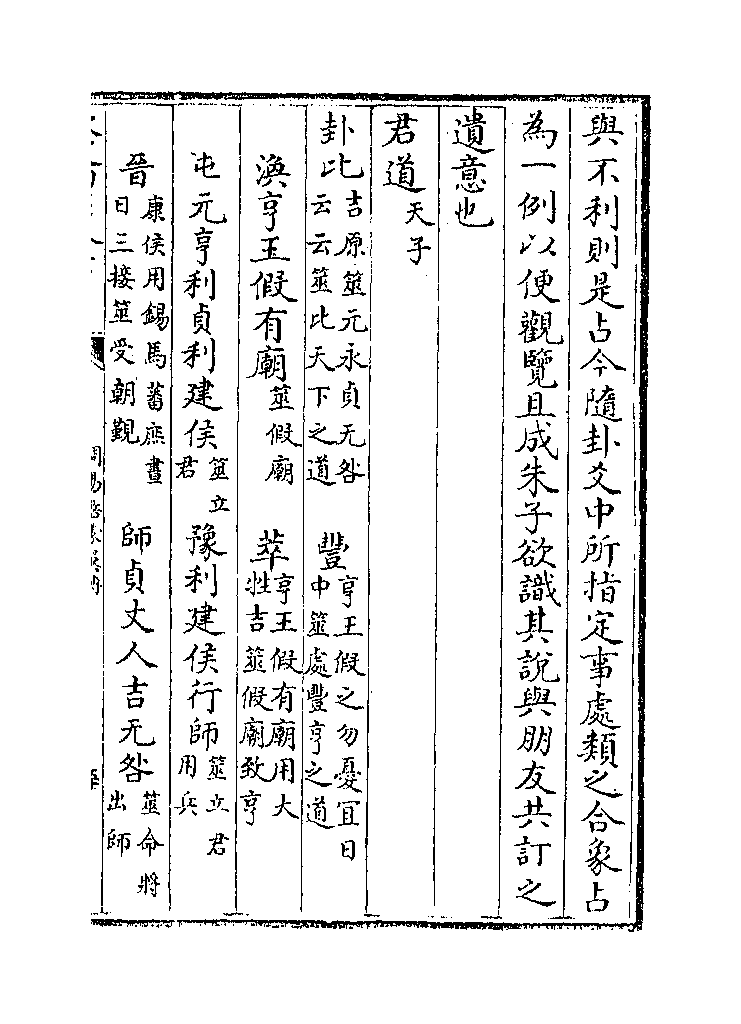 與不利則是占今隨卦爻中所指定事處類之合象占
為一例以便觀覽且成朱子欲識其說與朋友共訂之
遺意也
君道天子
卦比吉原筮元永貞无咎云云筮比天下之道 豐亨王假之勿憂宜日中筮處豐亨之道
渙亨王假有廟筮假廟 萃亨王假有廟用大牲吉筮假廟致亨
屯元亨利貞利建侯筮立君 豫利建侯行師筮立君用兵
晉康侯用錫馬蕃庶晝日三接筮受朝覲 師貞丈人吉无咎筮命將出師